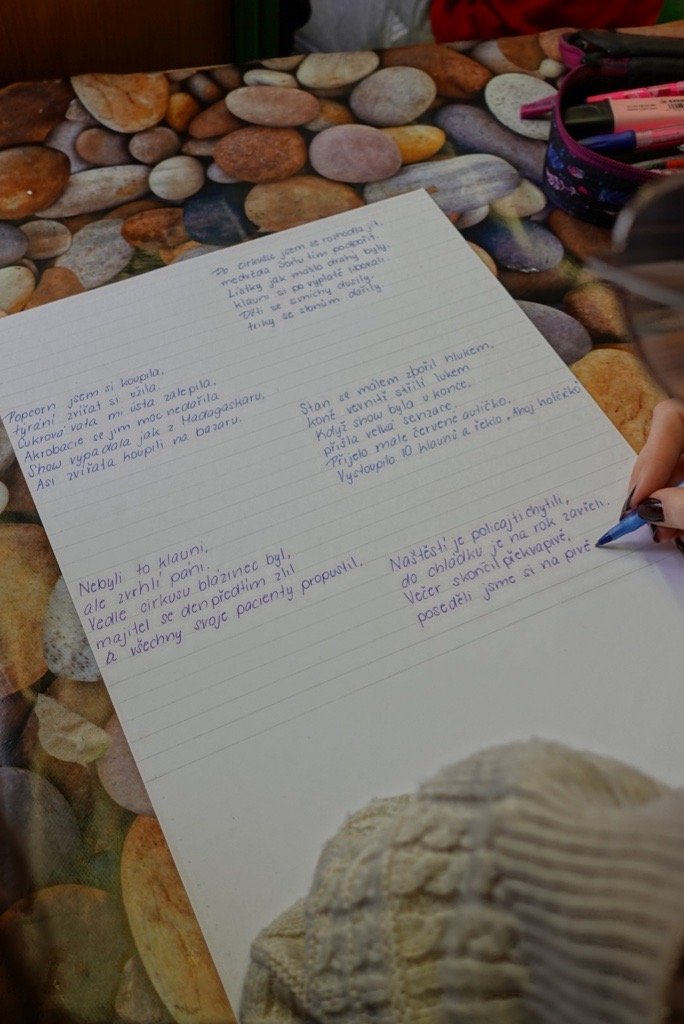 Do cirkusu jsem se rozhodla jít,
medvěda Soňu tím podpořit.
Lístky jak máslo drahý byly,
klauni si po výplatě libovali.
Děti se smíchy dusily.
triky se slonům dařily
Popcorn jsem si koupila,
týrání zvířat si užila.
Cukrová vata mi ústa zalepila,
Akrobacie se jim moc nedařila
Show vypadala jak z Madagaskaru,
Asi zvířata koupili na bazaru.
Stan se málem zbořil hlukem,
koně vevnitř stříli lukem
Když show byla u konce,
přišla velká senzace.
Přijelo malé červené autíčko.
Vystoupilo 10 klaunů a řeklo. Ahoj holčičko
Nebyli to klauni,
ale zvrhlí páni.
Vedle cirkusu blázinec byl,
majitel se den předtím zlil
a všechny svoje pacienty propustil.
Naštěstí je policajti chytili,
do chládku je na rok zavřeli.
Večer skončil překvapivě,
poseděli jsme si na pivě